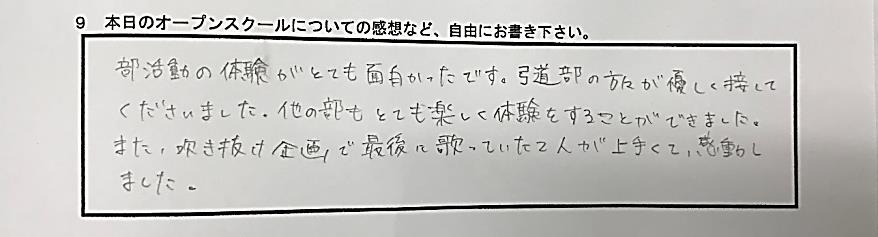 9 本日のオープンスクールについての感想など、自由にお書き下さい。
部活動の体験がとても面白かったです。弓道部の方々が優しく接して
くださいました。他の部もとても楽しく体験をすることができました。
また、吹き抜け企画で最後に歌っていた2人が上手くて、感動し
ました。